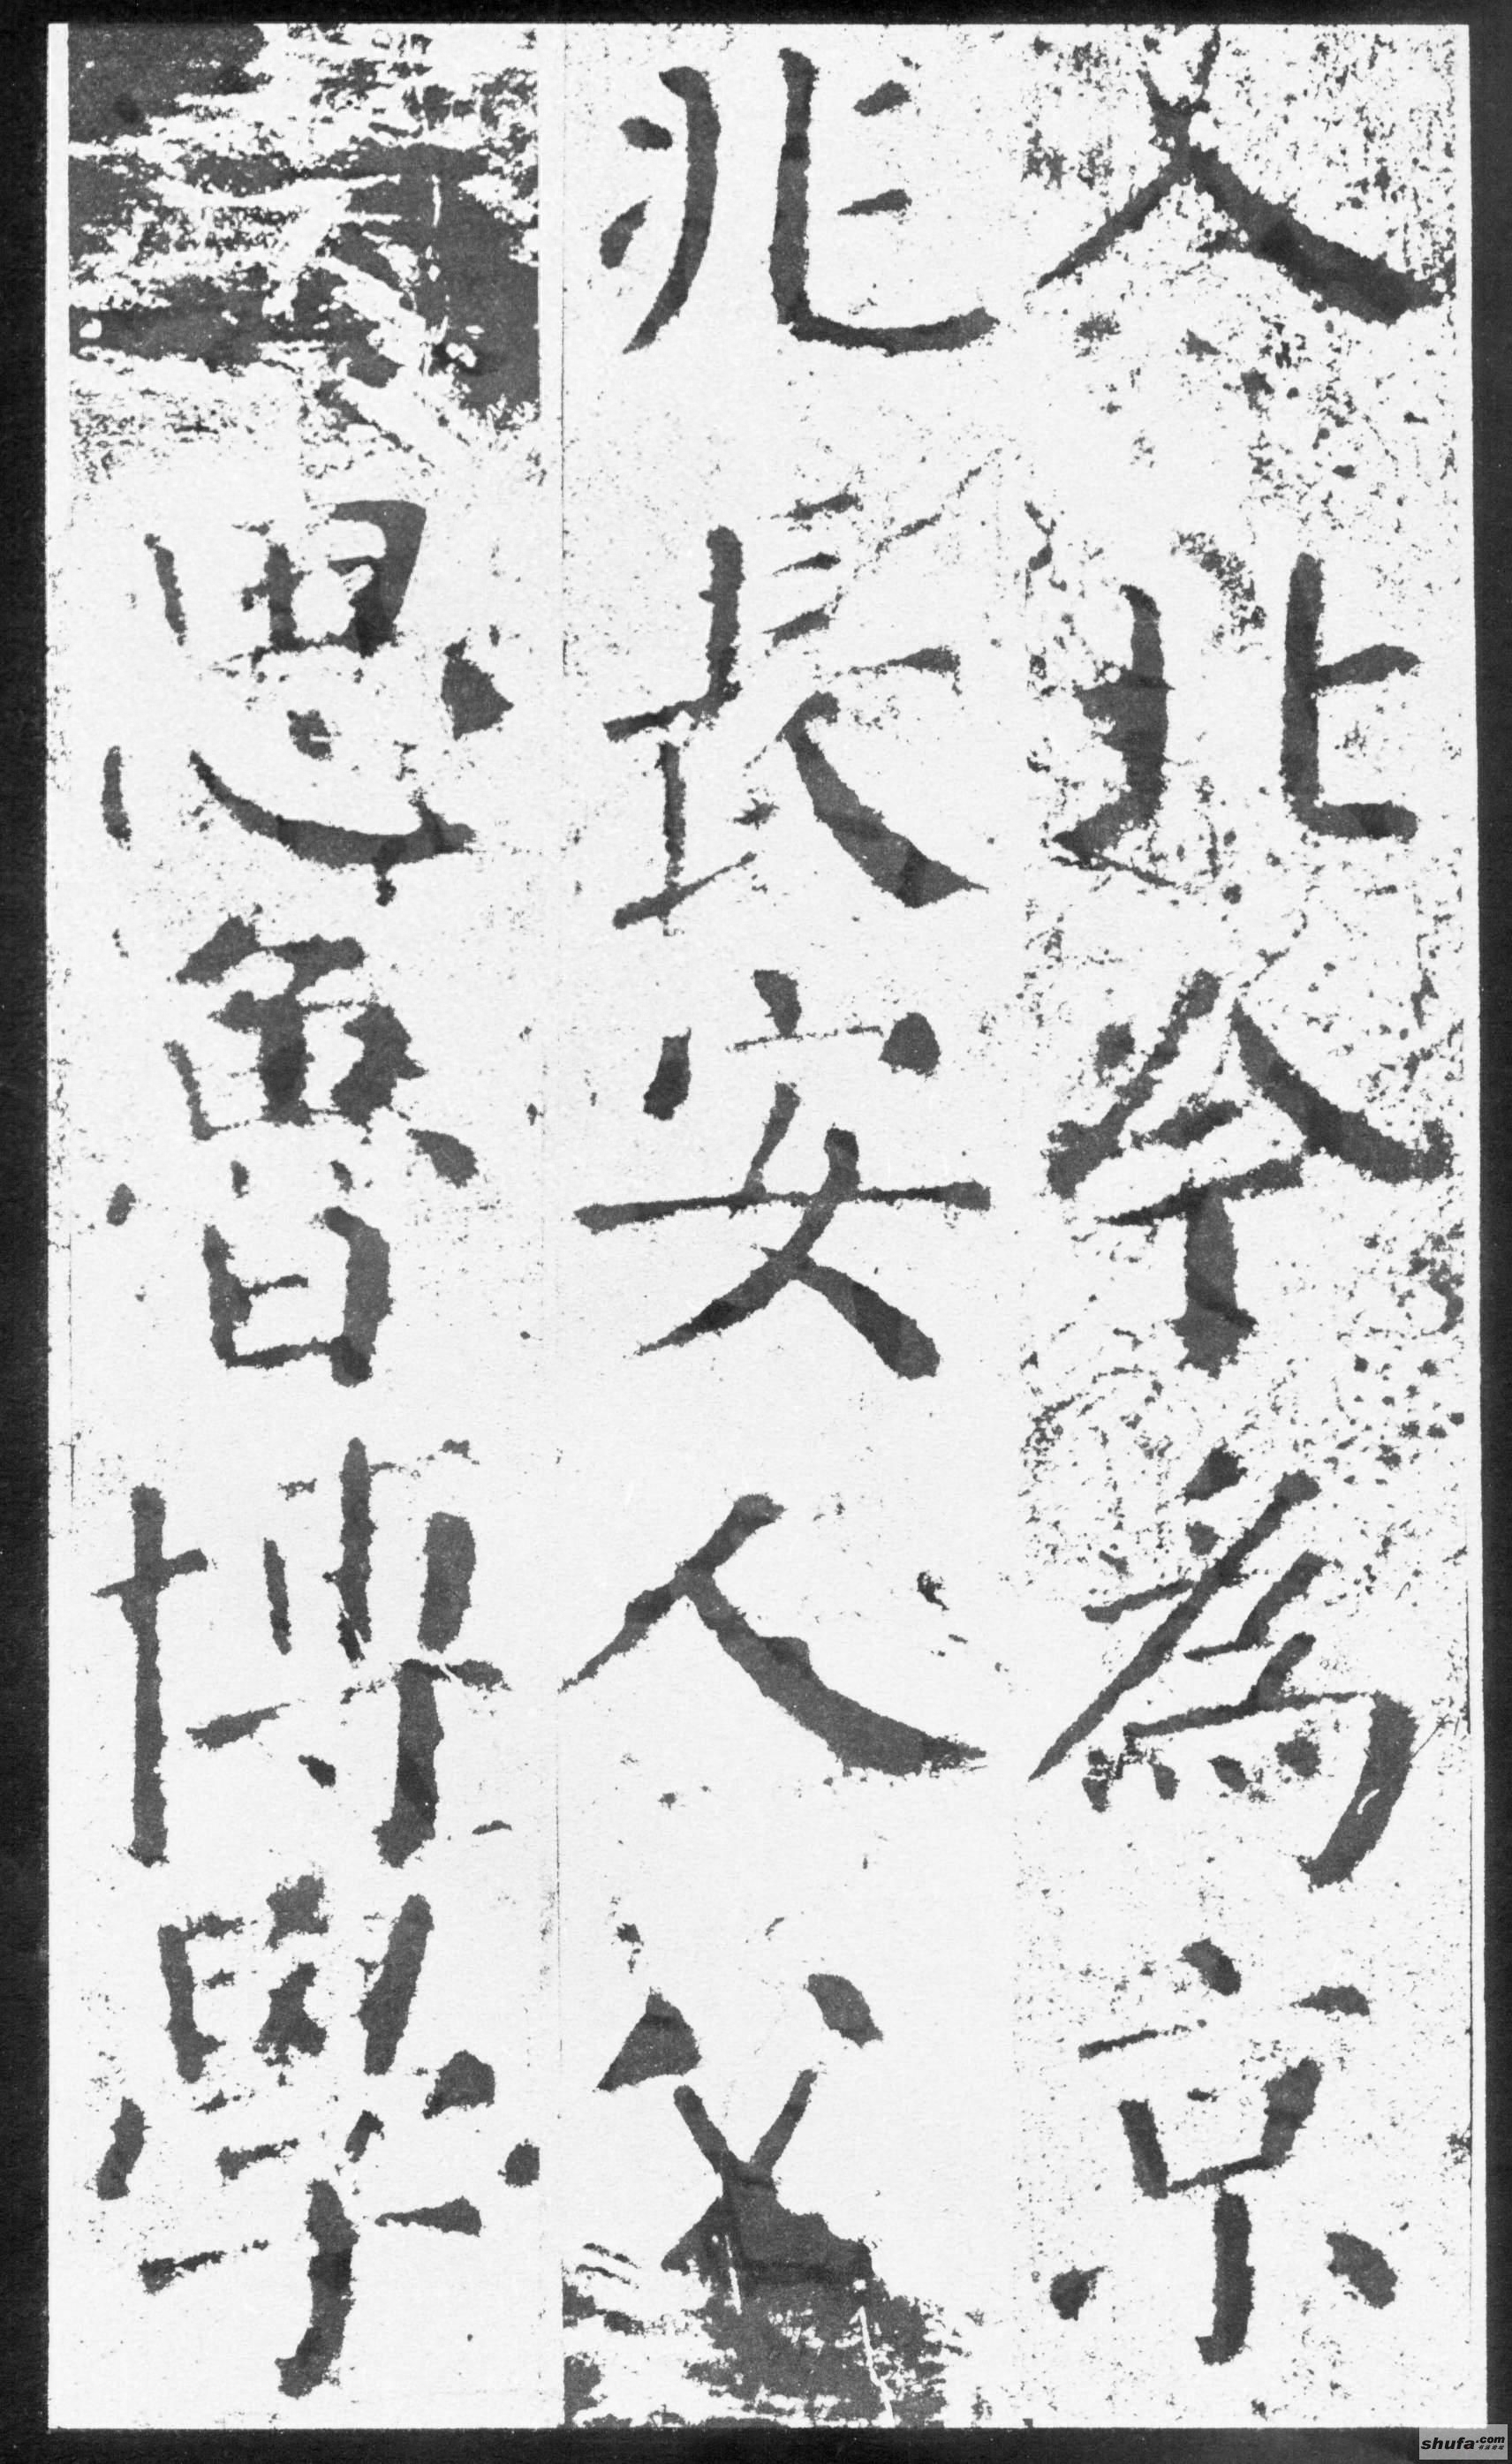 入北今為京
兆長安人父
思魯博學
shufa.com